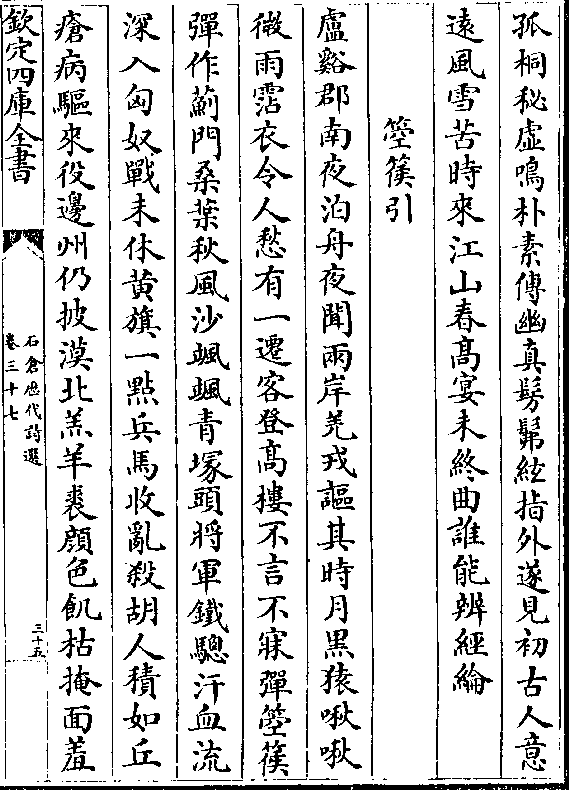 孤桐秘虛鳴朴素傳幽真髣髴絃指外遂見初古人意
遠風雪苦時來江山春高宴未終曲誰能辨經綸
箜篌引
盧谿郡南夜泊舟夜聞兩岸羌戎謳其時月黒猿啾啾
微雨霑衣令人愁有一遷客登高樓不言不寐彈箜篌
彈作薊門桑葉秋風沙颯颯青塚頭將軍鐵驄汗血流
深入匈奴戰未休黄旗一點兵馬收亂殺胡人積如丘
瘡病驅來役邊州仍披漠北羔羊裘顔色飢枯掩面羞
欽定四庫全書
石倉歴代詩選
卷三十七
三十五